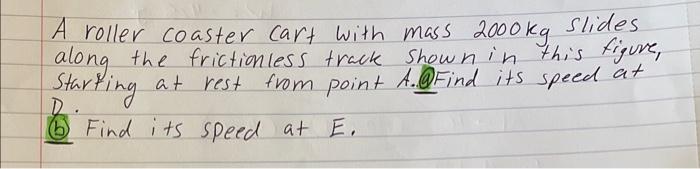 A roller coaster cart with mass 2000kg slides
along the frictionless track shown in this figure,
Starting at rest from point A. (a) Find its speed at
D.
(b) Find its speed at E.